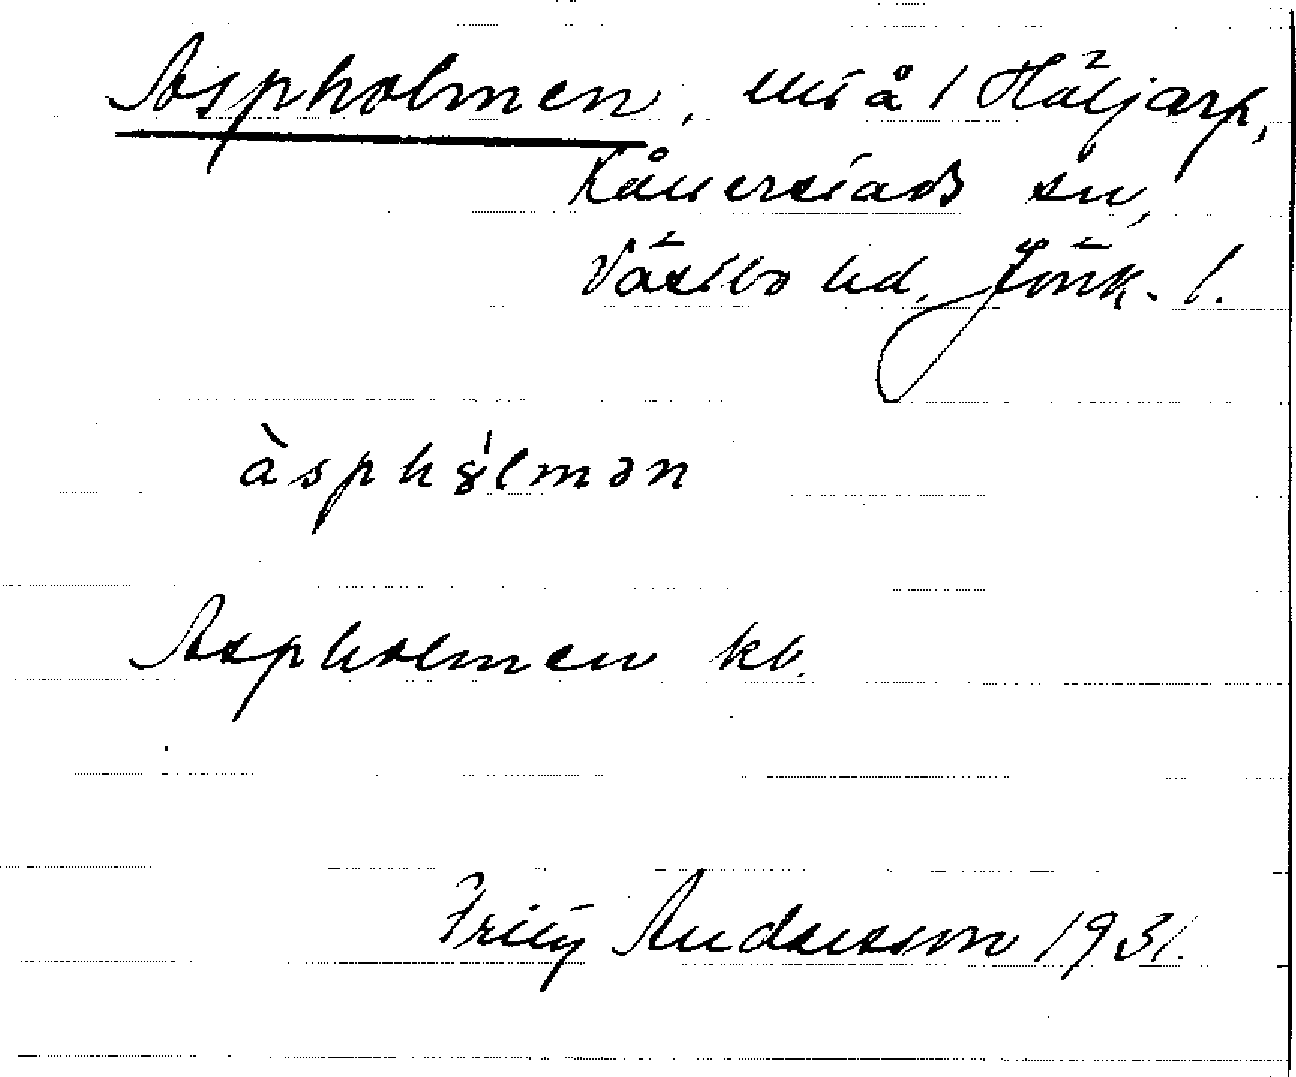 Aspholmen, utj å 1 Häljarp,
Kållerstads sn,
Västbo hd, Jönk. l.
àsphɣ̍lmən
Aspholmen kb.
Fritz Andersson 1931.